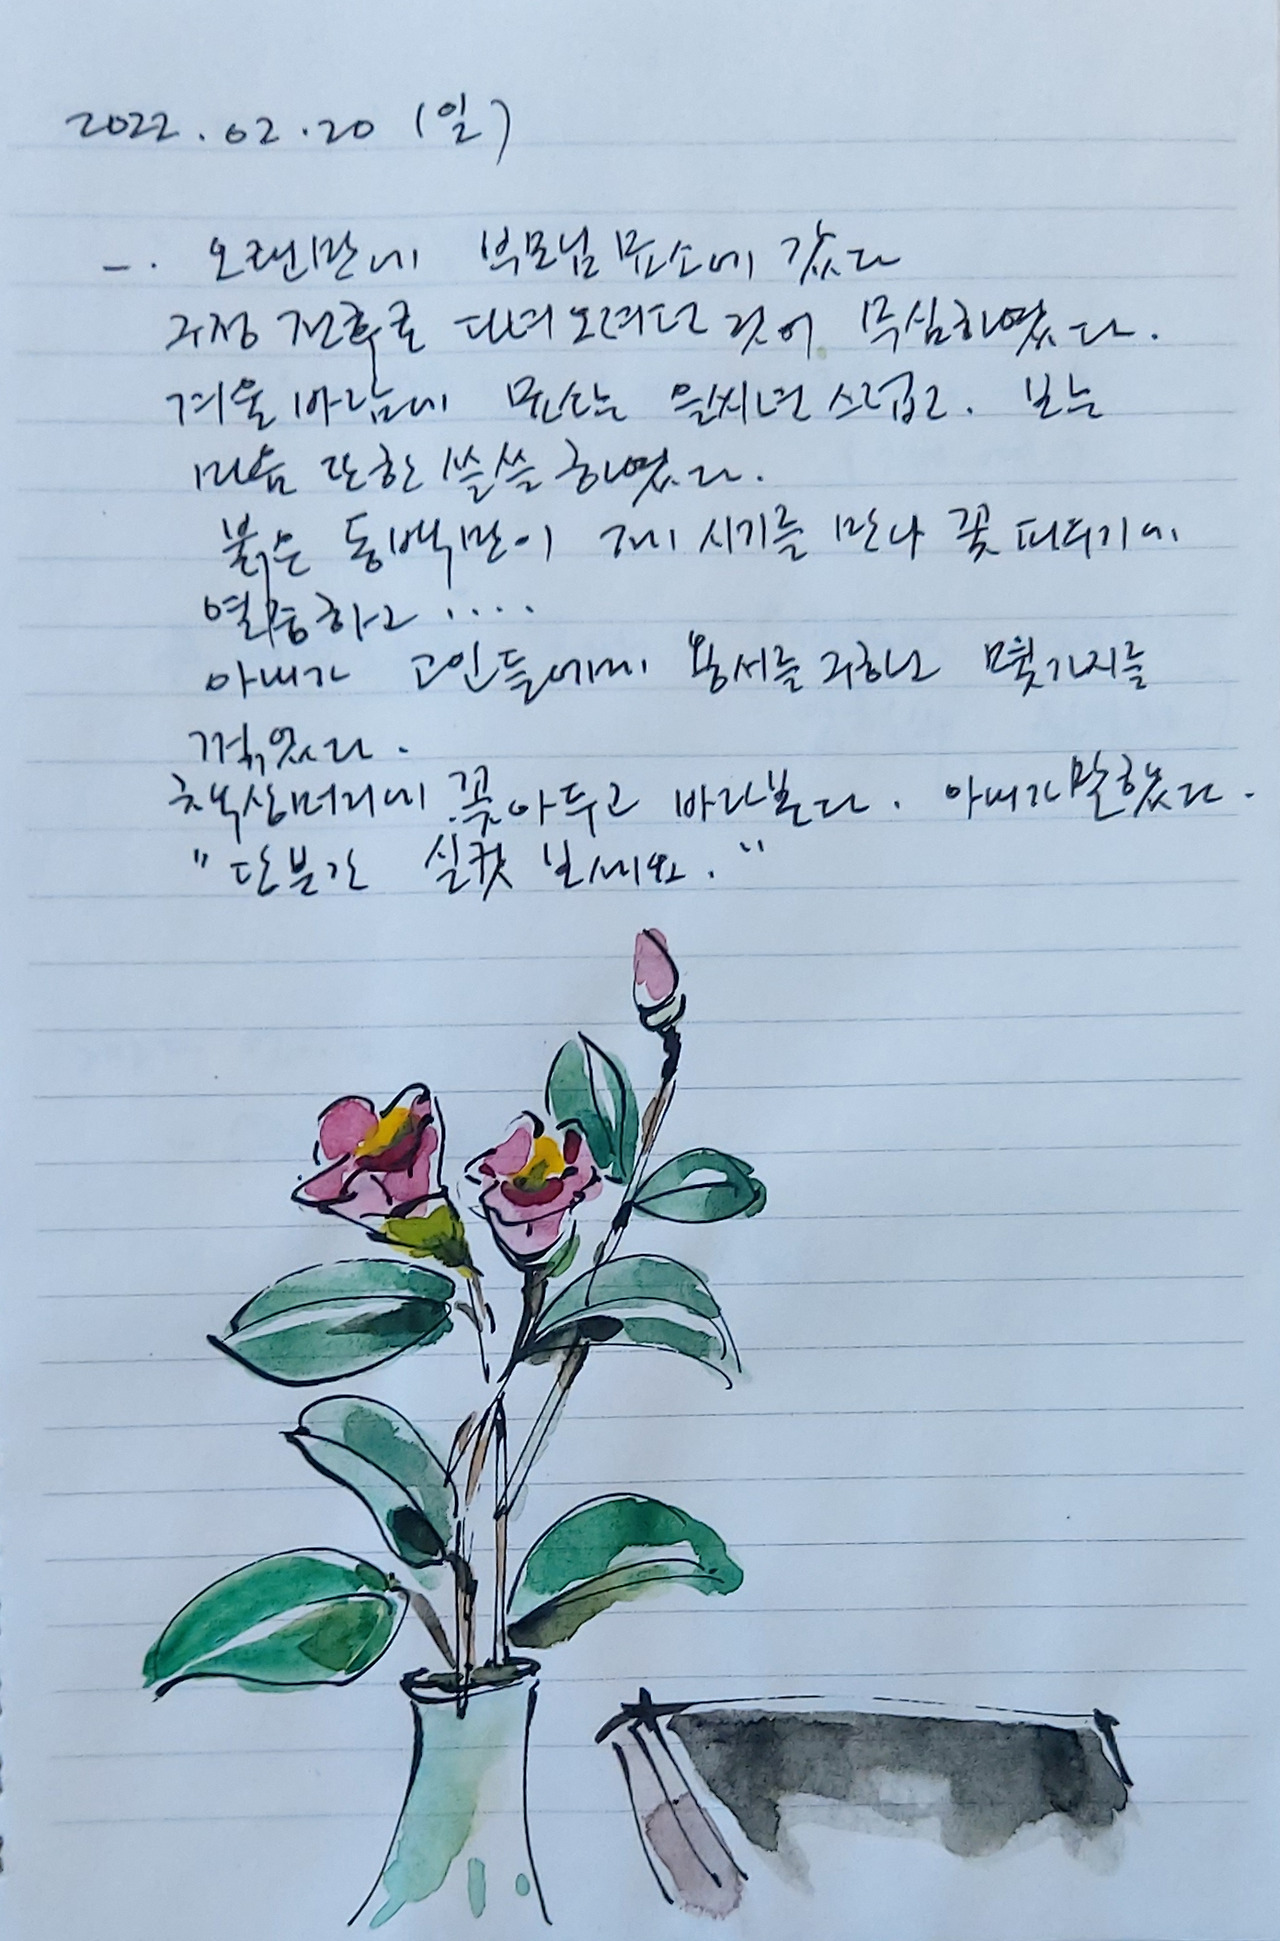 2022.02.20 (일)
一. 오랜만에 부모님 묘소에 갔다
구정 전후로 다녀오려던 것이 무심하였다.
겨울 바람에 묘소는 을씨년스럽고. 보는
마음 또한 쓸쓸하였다.
붉은 동백만이 제 시기를 만나 꽃 피우기에
열중하고 ....
아내가 고인들에게 용서를 구하난 몇 가지를
꺾었다.
책상머리에 꽂아두고 바라본다. 아내가 말했다.
"당분간 실컷 보세요."